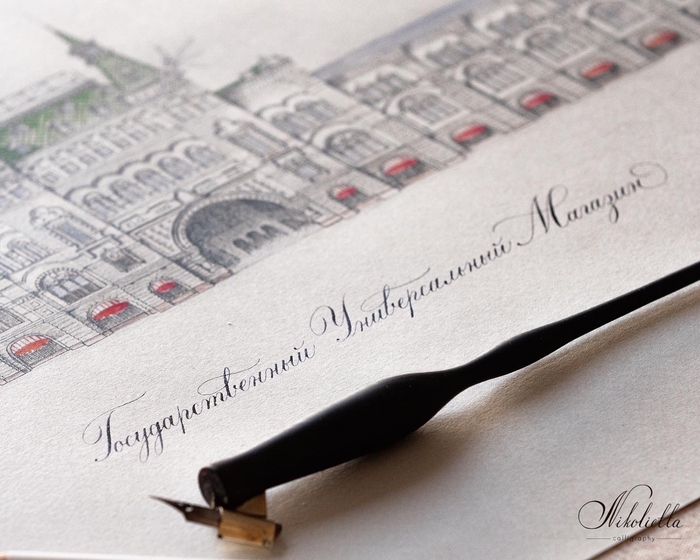 Государственный Универсальный Магазин
Nikoliella
calligraphy